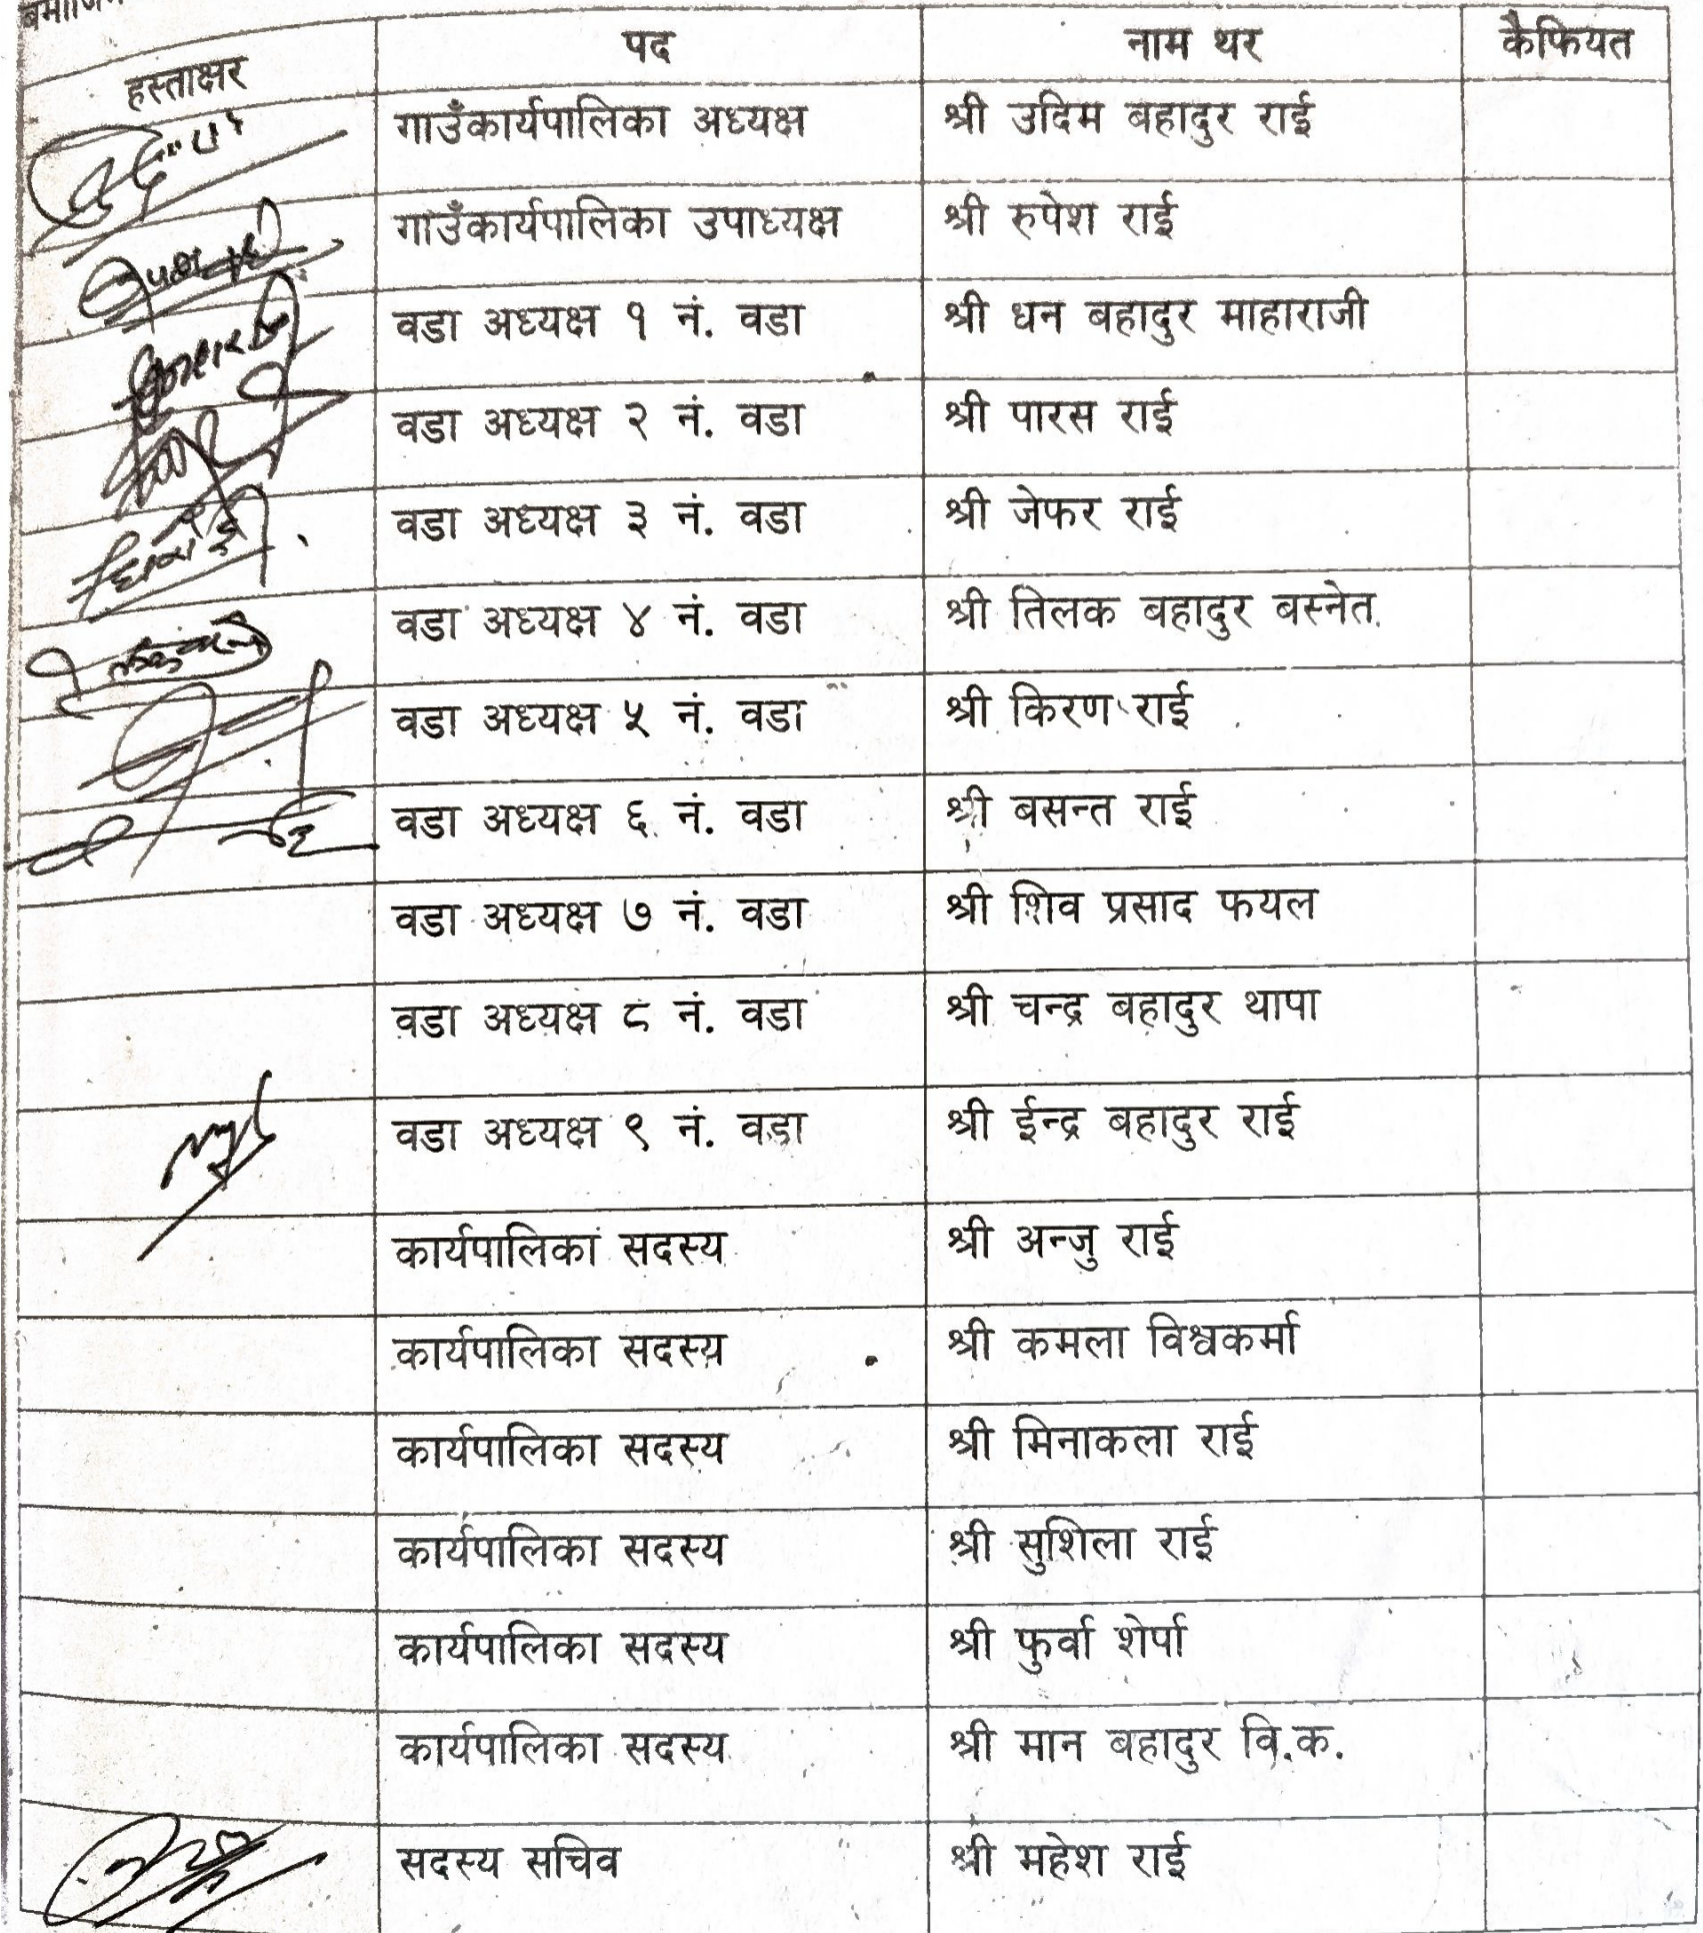 हस्ताक्षर पद नाम थर कैफियत
गाउँकार्यपालिका अध्यक्ष श्री उदिम बहादुर राई
गाउँकार्यपालिका उपाध्यक्ष श्री रुपेश राई
वडा अध्यक्ष १ नं. वडा श्री धन बहादुर माहाराजी
वडा अध्यक्ष २ नं. वडा श्री पारस राई
वडा अध्यक्ष ३ नं. वडा श्री जेफर राई
वडा अध्यक्ष ४ नं. वडा श्री तिलक बहादुर बस्नेत
वडा अध्यक्ष ५ नं. वडा श्री किरण राई
वडा अध्यक्ष ६ नं. वडा श्री बसन्त राई
वडा अध्यक्ष ७ नं. वडा श्री शिव प्रसाद फयल
वडा अध्यक्ष ८ नं. वडा श्री चन्द्र बहादुर थापा
वडा अध्यक्ष ९ नं. वडा श्री ईन्द्र बहादुर राई
कार्यपालिका सदस्य श्री अन्जु राई
कार्यपालिका सदस्य श्री कमला विश्वकर्मा
कार्यपालिका सदस्य श्री मिनाकला राई
कार्यपालिका सदस्य श्री सुशिला राई
कार्यपालिका सदस्य श्री फुर्वा शेर्पा
कार्यपालिका सदस्य श्री मान बहादुर वि.क.
सदस्य सचिव श्री महेश राई